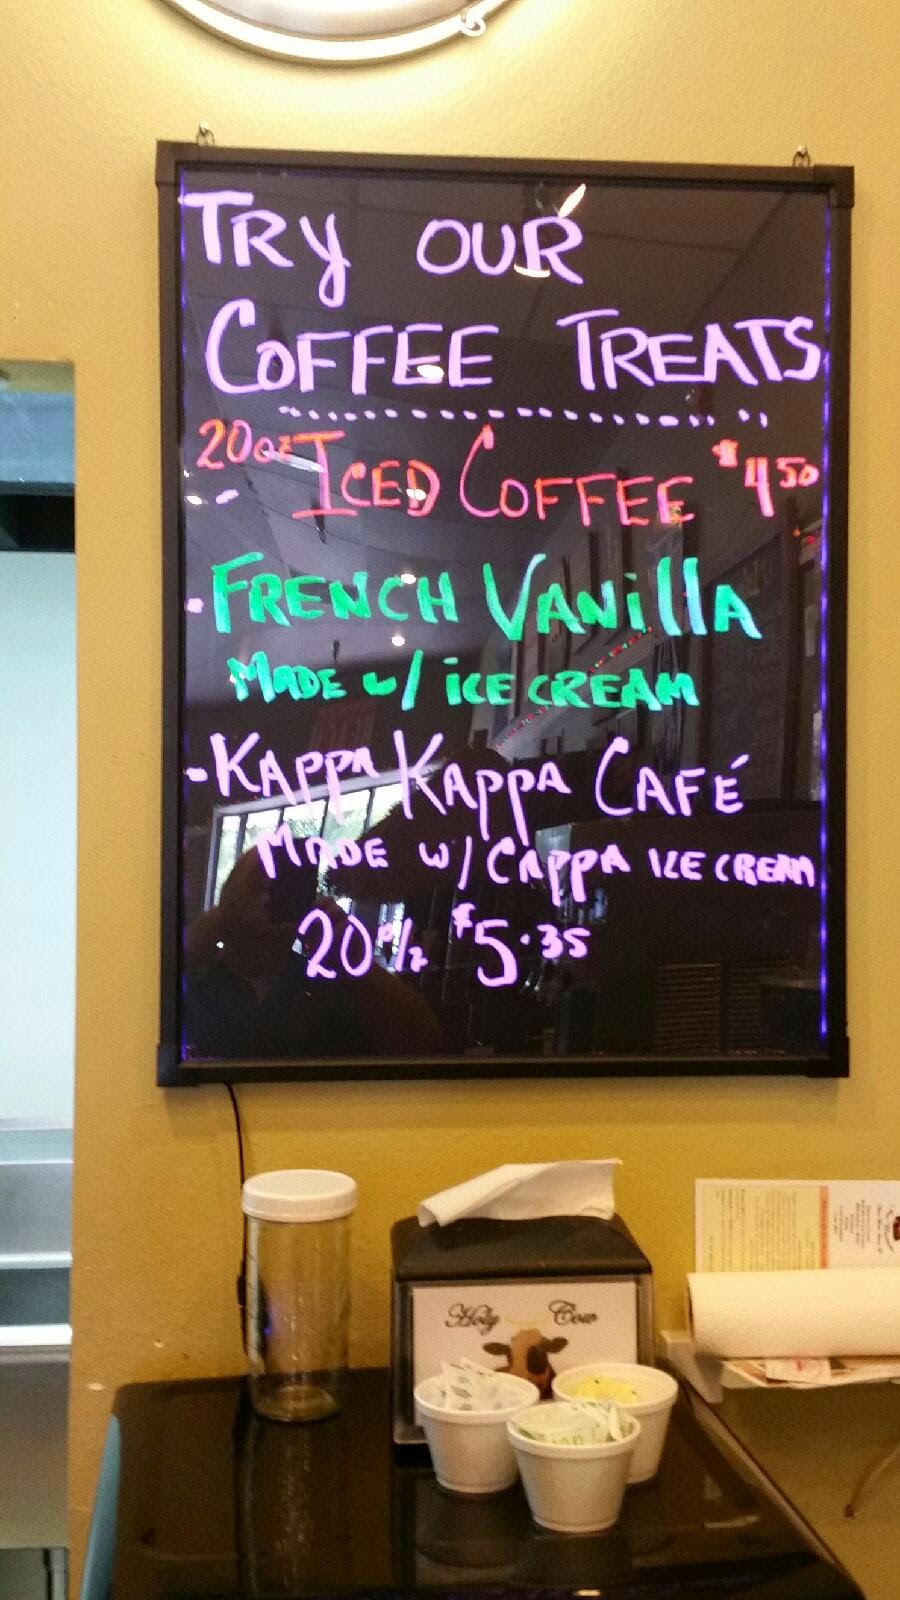 TRy OUR
COFFEE TREATS
20oz ICED COFFEE $4.50
- FRENCH VANilla
MADE w/ iCE CREAM
- KAPPA KAPPA CAFÉ
MADE W/ CAPPA ICE CREAM
20oz $5.35
Holy Cow